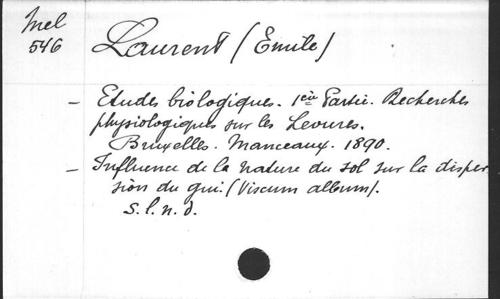 Mel
546
Laurent (Emile)
- Etudes biologiques. 1ère Partie. Recherches
physiologiques sur les Levures.
Bruxelles. Manceaux. 1890.
- Influence de la nature du sol sur la disper
sion du gui. (Viscum album).
S. l. n. d.